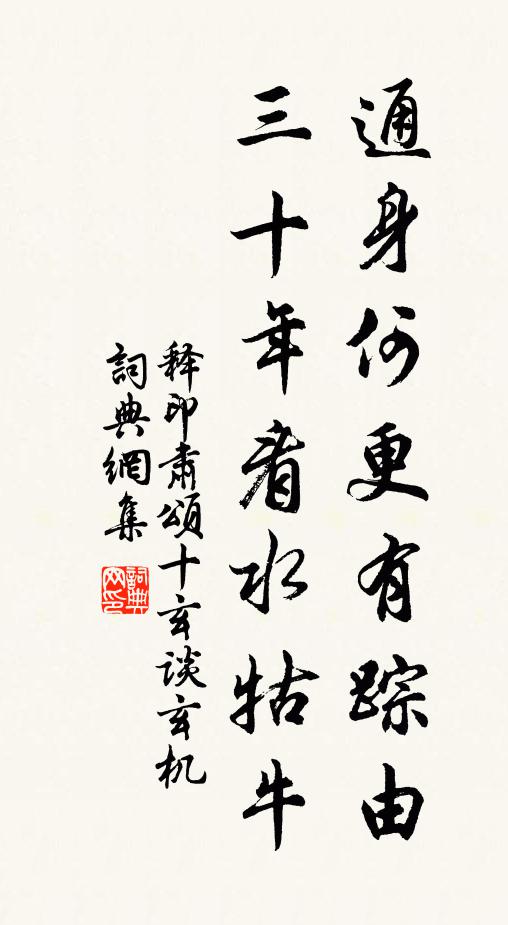 通身何更有踪由
三十年看水牯牛
释印肃頌十玄谈玄机
詞典網集
詞典网印